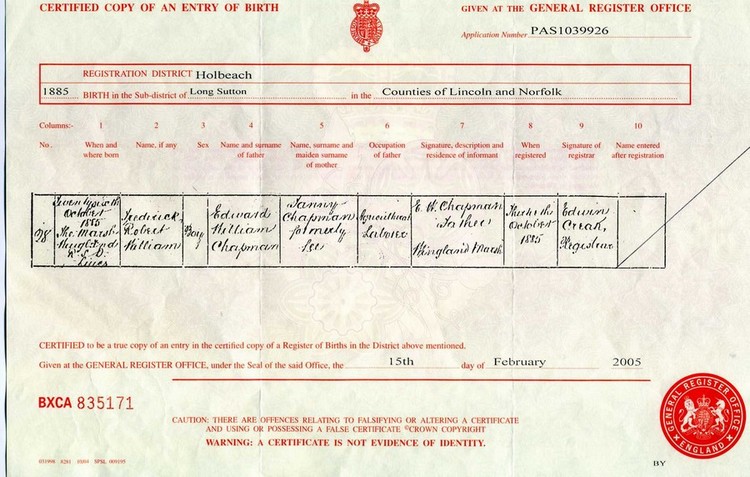 CERTIFIED COPY OF AN ENTRY OF BIRTH
GIVEN AT THE GENERAL REGISTER OFFICE
Application Number PAS1039926
REGISTRATION DISTRICT Holbeach
1885 BIRTH in the Sub-district of Long Sutton in the Counties of Lincoln and Norfolk
Columns:- 1 2 3 4 5 6 7 8 9 10
No. When and where born Name, if any Sex Name and surname of father Name, surname and maiden surname of mother Occupation of father Signature, description and residence of informant When registered Signature of registrar Name entered after registration
98
Twenty sixth
October
1885
The Marsh
Lincs
Frederick
Robert
William
Boy
Edward
William
Chapman
Fanny
Chapman
formerly
Lee
Agricultural
Labourer
E. W. Chapman
Father
Wingland Marsh
October
1885
Edwin
Creak,
Registrar
CERTIFIED to be a true copy of an entry in the certified copy of a Register of Births in the District above mentioned.
Given at the GENERAL REGISTER OFFICE, under the Seal of the said Office, the 15th day of February 2005
BXCA 835171
CAUTION: THERE ARE OFFENCES RELATING TO FALSIFYING OR ALTERING A CERTIFICATE
AND USING OR POSSESSING A FALSE CERTIFICATE ©CROWN COPYRIGHT
WARNING: A CERTIFICATE IS NOT EVIDENCE OF IDENTITY.
GENERAL REGISTER OFFICE
ENGLAND
BY